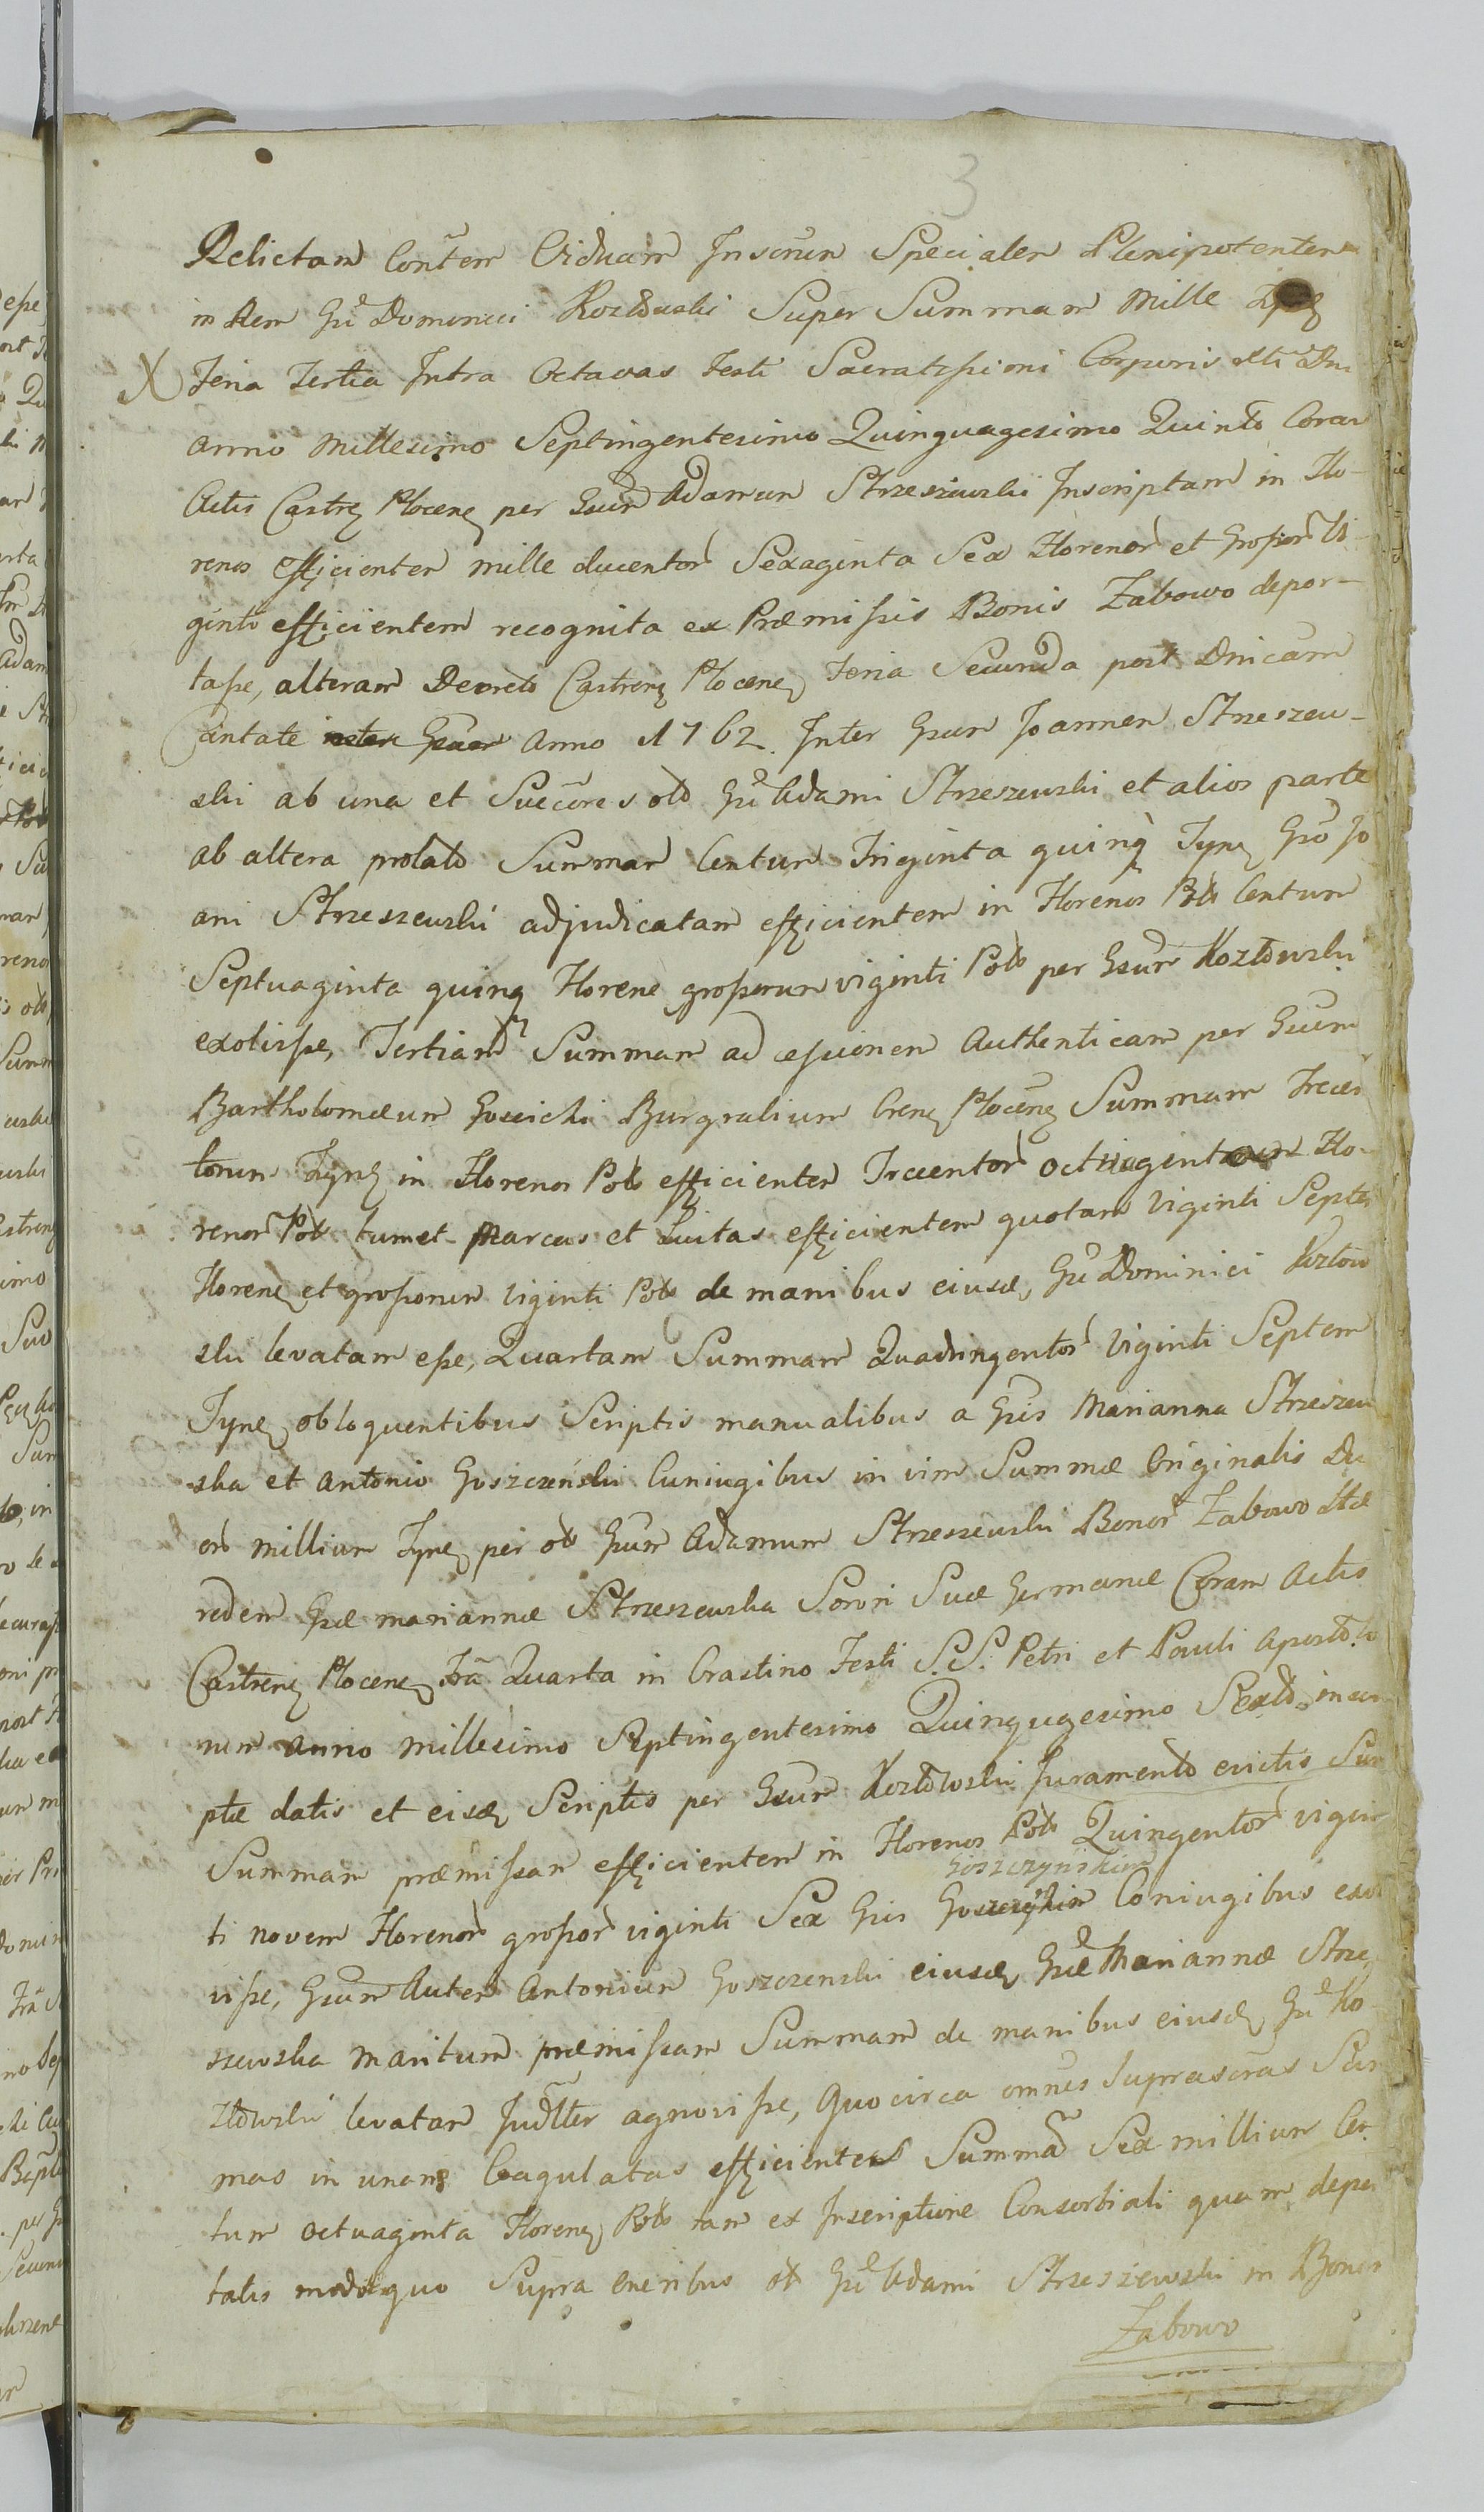 3
Relictam Contem Viduam Inscrum Specialem Plenipotentem
in Rem Gsi Dominici Kozłowski Super Summam Mille Tynf
X Feria Tertia Intra Octavas Festi Sacratissimi Corporis Xti Dni
anno Millesimo Septingentesimo Quinquagesimo Quinto Coram
Actis Castren Plocen per Gsum Adamum Strzeszewski Inscriptam in Flo-
renos efficientem mille ducentor Sexaginta Sex Florenor et Grossor Vi-
ginti efficientem recognita ex Præmissis Bonis Zabowo depor-
tasse, alteram Decreto Castren Plocen Feria Secunda post Dnicam
Cantate Anno 1762. Inter Gsum Joannem Strzeszew-
ski ab una et Succores olo Gsi Adami Strzeszewski et alios parte
ab altera prolato Summam Centum Triginta quinq Tynf Gso Jo
ani Strzeszewski adjudicatam efficientem in Florenos Pols Centum
Septuaginta quinq Floren grossorum viginti Pols per Gsum Kozłowski
exolvisse, Tertiam Summam ad Authenticam per Gsum
Bartholomæum Burgrabium Cren Plocen Summam Trecen
torum Tynf in Florenos Pols efficientem Trecentor Flo-
renor Pols tum et Marcas et Luitas efficientem quotam Viginti Septem
Floren et grossorum Viginti Pols de manibus eiusd Gsi Dominici Kozłow
ski levatam esse, Quartam Summam Quadringentor Viginti Septem
Tynf obloquentibus Scriptis manualibus a Gsis Marianna Strzeszew
ska et Antonio Goszczeński Coniugibus in vim Summæ Originalis Du
or millium Tynf per olo Gsum Adamum Strzeszewski Bonor Zabowo Hæ
redem Gsæ Mariannæ Strzeszewska Sorori Suæ Germanæ Coram Actis
Castren Plocen Fria Quarta in Crastino Festi S.S. Petri et Pauli Apostolo
rum anno millesimo Septingentesimo Quinquagesimo Sexto inscri
ptæ datis et eisd Scriptis per Gsum Kozłowski Juramento evictis
Summam præmissam efficientem in Florenos Pols Quingentor vigin
Goszczyńskim
ti novem Florenor grossor viginti Sex Gsis Coniugibus exol
visse, Gsum Autem Antonium Goszczenski eiusd Gsæ Mariannæ Strze
szewska Maritum præmissam Summam de manibus eiusd Gsi Ko-
złowski levatam Judtter agnovisse, Quocirca omnes Suprascras Sum
mas in unam Coagulatas efficientes Summam Sex millium Cen
tum octuaginta Floren Pols tam ex Inscriptione Consortiali quam depor
tatis modo quo Supra oneribus olo Gsi Adami Strzeszewski in Bonis
Zabowo